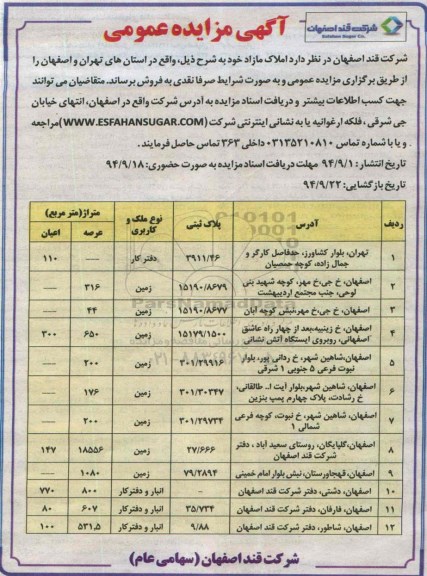 شرکت قند اصفهان
Esfahan Sugar Co.
آگهی مزایده عمومی
شرکت قند اصفهان در نظر دارد املاک مازاد خود به شرح ذیل، واقع در استان های تهران و اصفهان را
از طریق برگزاری مزایده عمومی و به صورت شرایط صرفا نقدی به فروش برساند. متقاضیان می توانند
جهت کسب اطلاعات بیشتر و دریافت اسناد مزایده به آدرس شرکت واقع در اصفهان، انتهای خیابان
جی شرقی ، فلکه ارغوانیه یا به نشانی اینترنتی شرکت (WWW.ESFAHANSUGAR.COM) مراجعه
و یا با شماره تماس ۰۳۱۳۵۲۱۰۸۱۰ داخلی ۳۶۳ تماس حاصل فرمایند.
تاریخ انتشار: ۹۴/۹/۱ مهلت دریافت اسناد مزایده به صورت حضوری: ۹۴/۹/۱۸
تاریخ بازگشایی: ۹۴/۹/۲۲
ردیف آدرس پلاک ثبتی نوع ملک و کاربری متراژ(متر مربع) عرصه اعیان
۱ تهران، بلوار کشاورز، حدفاصل کارگر و جمال زاده، کوچه جمصیان ۳۹۱۱/۴۶ دفتر کار ---- ۱۱۰
۲ اصفهان، خ جی،خ مهر، کوچه شهید بنی لوحی، جنب مجتمع اردیبهشت ۱۵۱۹۰/۸۶۷۹ زمین ۳۱۶ ----
۳ اصفهان، خ جی،خ مهر،نبش کوچه آبان ۱۵۱۹۰/۸۶۷۷ زمین ۴۴ ----
۴ اصفهان، خ زینبیه،بعد از چهار راه عاشق اصفهانی، روبروی ایستگاه آتش نشانی ۱۵۱۷۹/۱۵۰۰ زمین ۶۵۰ ۳۰۰
۵ اصفهان،شاهین شهر، خ ردانی پور، بلوار نبوت فرعی ۵ جنوبی ۱ شرقی ۳۰۱/۲۹۹۱۶ زمین ۲۰۰ ----
۶ اصفهان، شاهین شهر،بلوار آیت ا.. طالقانی، خ رشادت، پلاک چهارم پمپ بنزین ۳۰۱/۳۰۳۴۷ زمین ۱۷۶ ----
۷ اصفهان، شاهین شهر، خ نبوت، کوچه فرعی شمالی ۱ ۳۰۱/۲۹۷۳۴ زمین ۲۰۰ ----
۸ اصفهان،گلپایگان، روستای سعید آباد ، دفتر شرکت قند اصفهان ۲۷/۶۶۶ زمین ۱۸۵۵۶ ۱۴۷
۹ اصفهان، قهجاورستان، نبش بلوار امام خمینی ۷۹/۲۸۹۴ زمین ۱۰۸۰ ----
۱۰ اصفهان، دشتی، دفتر شرکت قند اصفهان - انبار و دفترکار ۸۰۰ ۷۷۰
۱۱ اصفهان، فارفان، دفتر شرکت قند اصفهان ۳۵/۷۳۴ انبار و دفترکار ۶۰۷ ۸۰
۱۲ اصفهان، شاطور، دفتر شرکت قند اصفهان ۹/۸۸ انبار و دفترکار ۵۳۱,۵ ۱۰۰
شرکت قند اصفهان (سهامی عام)